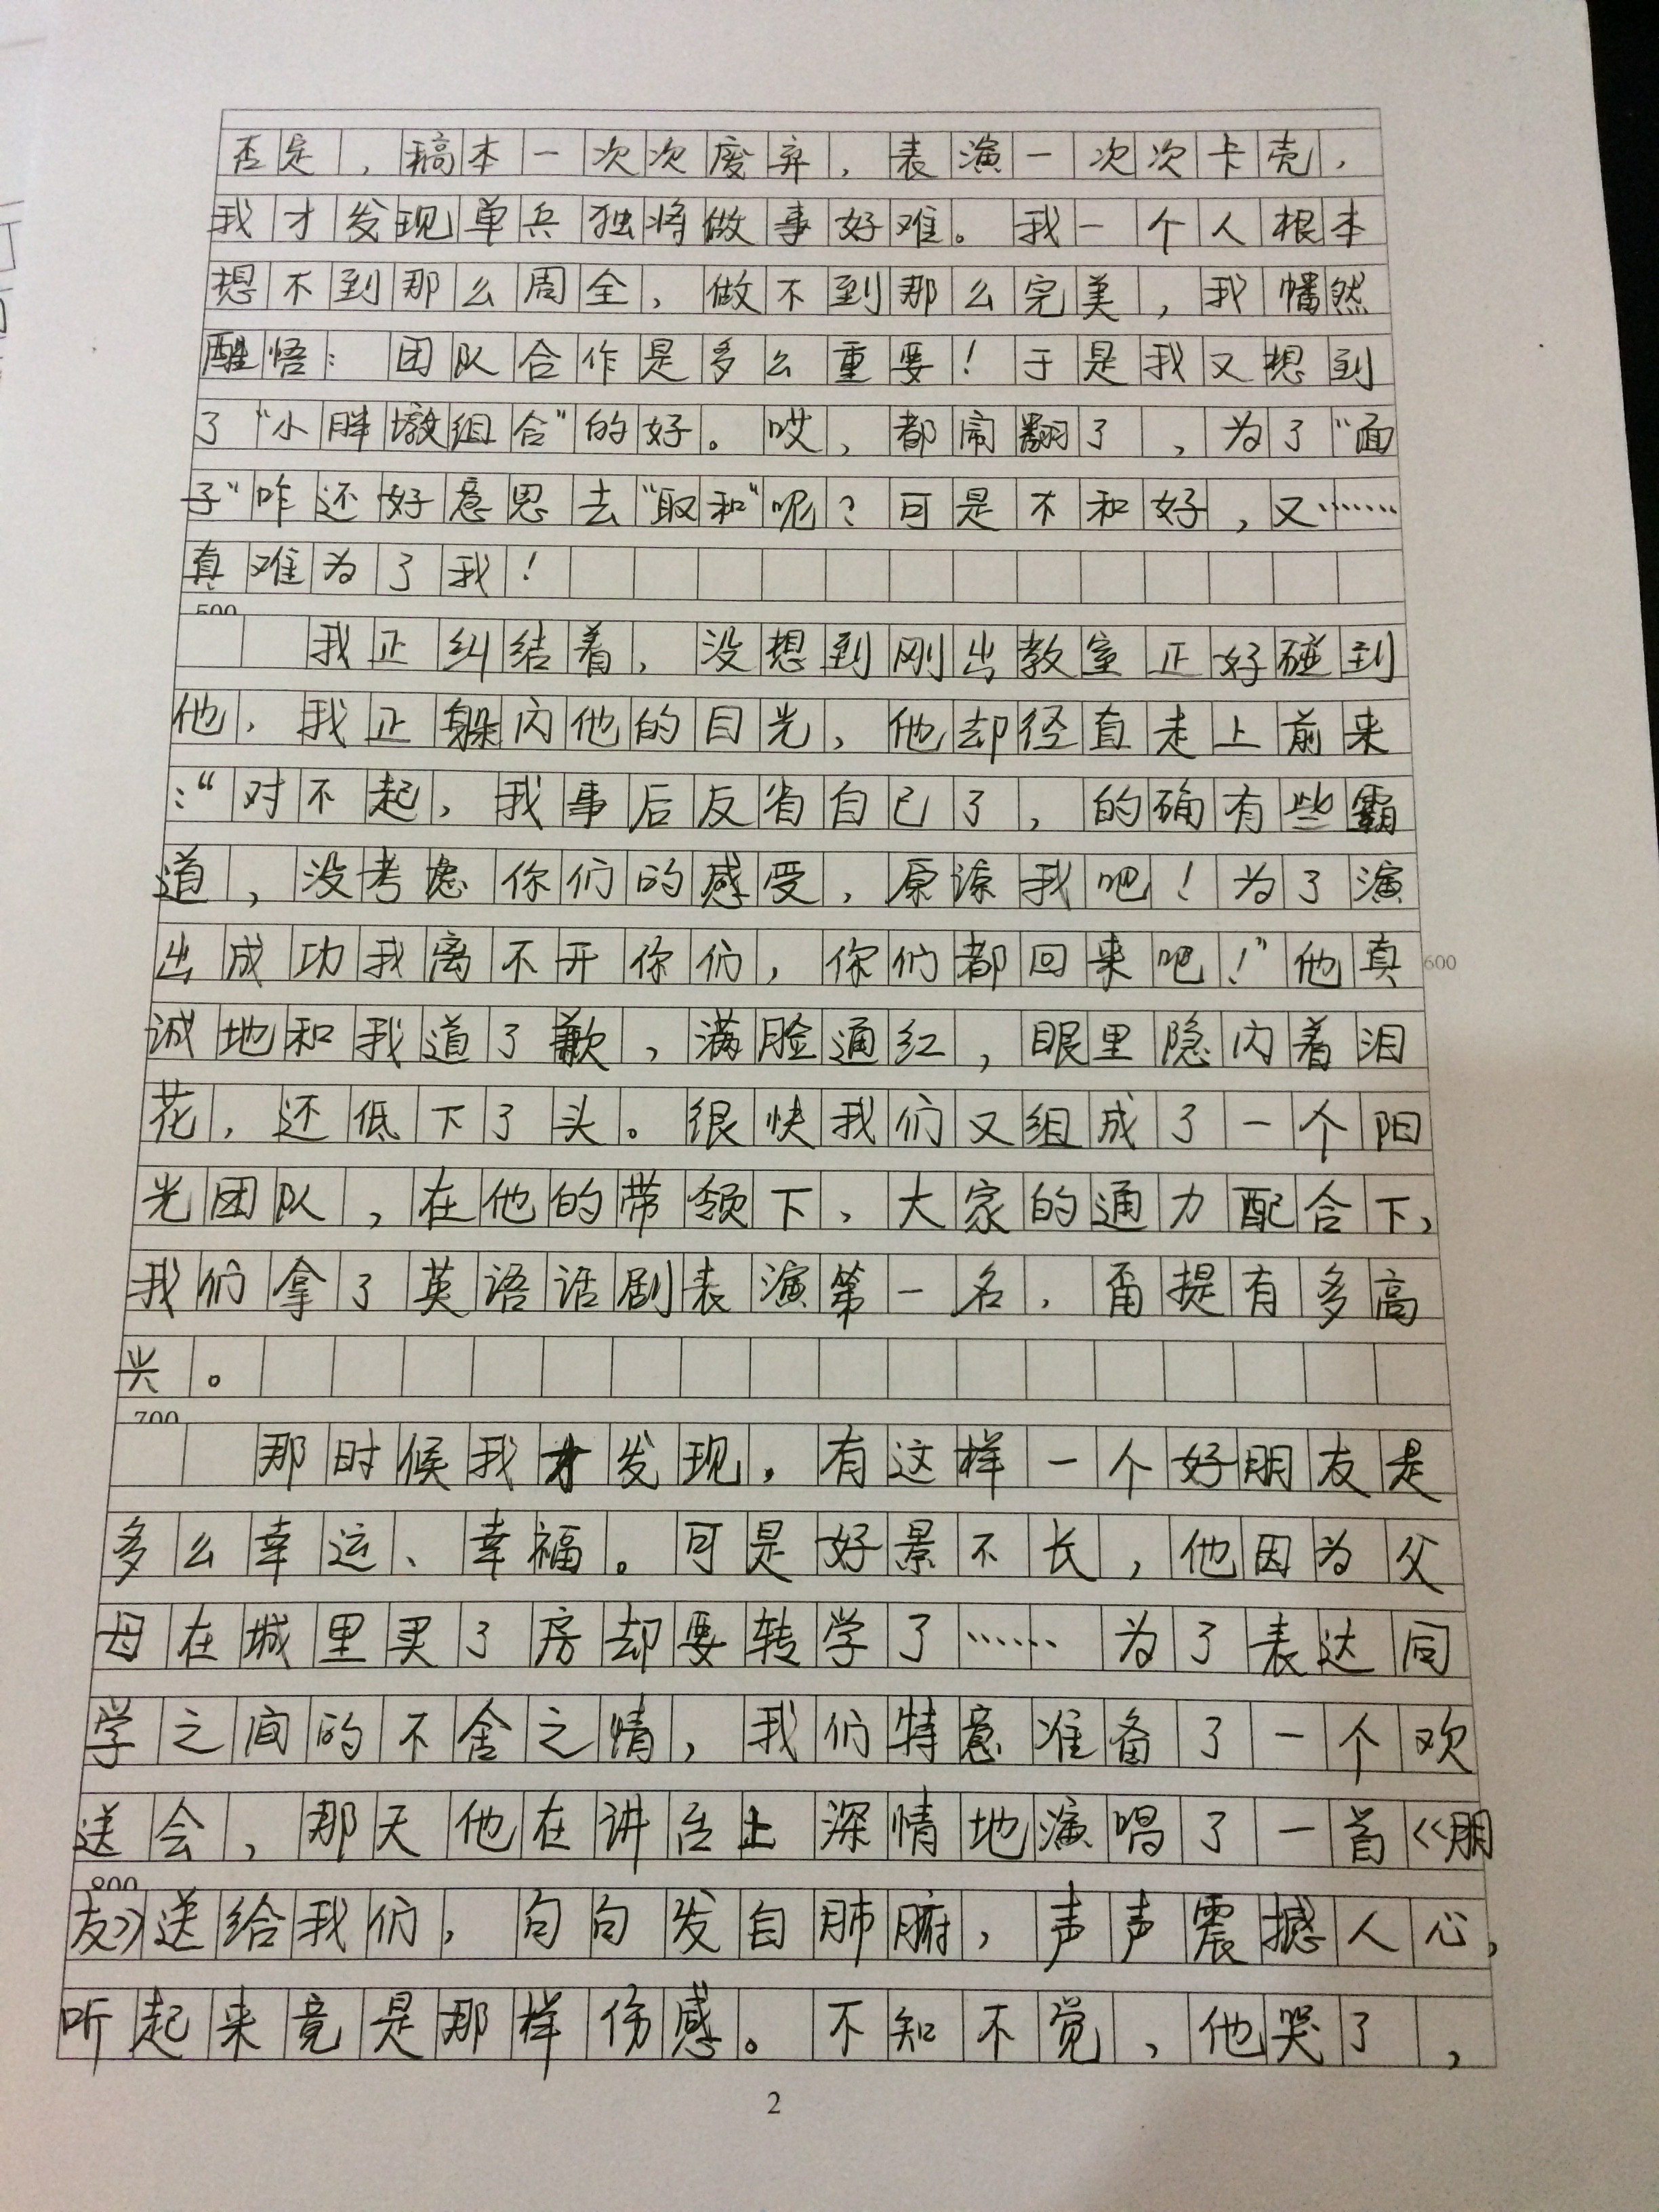 否定，稿本一次次废弃，表演一次次卡壳，
我才发现单兵独将做事好难。我一个人根本
想不到那么周全，做不到那么完美，我幡然
醒悟：团队合作是多么重要！于是我又想到
了“小胖墩组合”的好。哎，都闹翻了，为了“面
子”咋还好意思去“取和”呢？可是不和好，又……
真难为了我！
500
我正纠结着，没想到刚出教室正好碰到
他，我正躲闪他的目光，他却径直走上前来
：“对不起，我事后反省自己了，的确有些霸
道，没考虑你们的感受，原谅我吧！为了演
出成功我离不开你们，你们都回来吧！”他真
600
诚地和我道了歉，满脸通红，眼里隐闪着泪
花，还低下了头。很快我们又组成了一个阳
光团队，在他的带领下，大家的通力配合下，
我们拿了英语话剧表演第一名，甭提有多高
兴。
700
那时候我才发现，有这样一个好朋友是
多么幸运、幸福。可是好景不长，他因为父
母在城里买了房却要转学了……为了表达同
学之间的不舍之情，我们特意准备了一个欢
送会，那天他在讲台上深情地演唱了一首《朋
800
友》送给我们，句句发自肺腑，声声震撼人心，
听起来竟是那样伤感。不知不觉，他哭了，
2